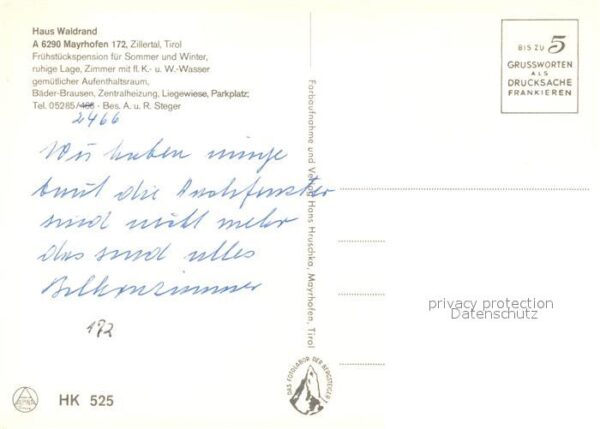 Haus Waldrand
A 6290 Mayrhofen 172, Zillertal, Tirol
Frühstückspension für Sommer und Winter,
ruhige Lage, Zimmer mit fl. K.- u. W.-Wasser
gemütlicher Aufenthaltsraum,
Bäder-Brausen, Zentralheizung, Liegewiese, Parkplatz;
Tel. 05285/ - Bes. A. u. R. Steger
2466
Wir haben
die Dachfenster
sind nicht mehr
das sind alles
Balkonzimmer
172
HK 525
Farbaufnahme und Verlag Hans Hruschka, Mayrhofen, Tirol
DAS FOTOLABOR DER BERGSTEIGER
BIS ZU 5
GRUSSWORTEN
ALS
DRUCKSACHE
FRANKIEREN
privacy protection
Datenschutz